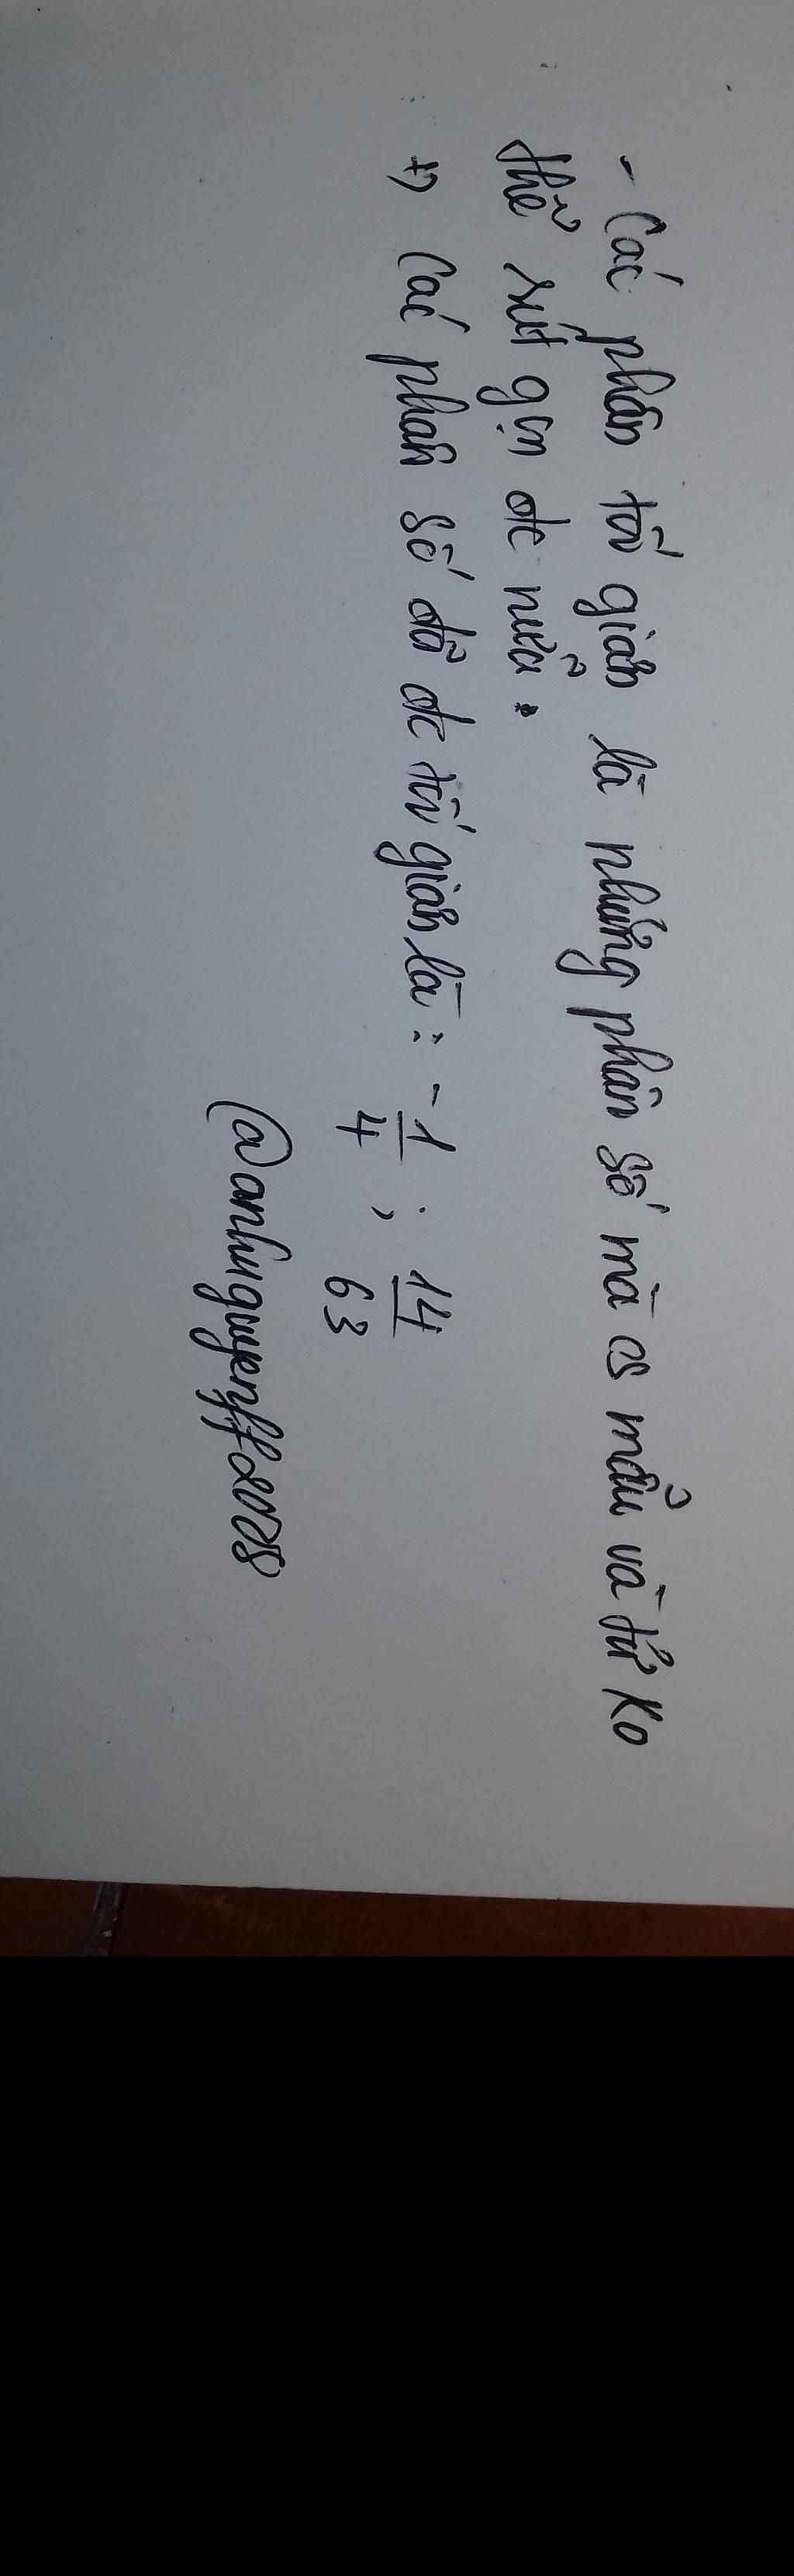 - Các phân tối giản là những phân số mà cs mẫu và tử ko
thể rút gọn đc nữa.
+) Các phân số đã đc tối giản là : -1/4 ; 14/63
@anhuguyenff2008